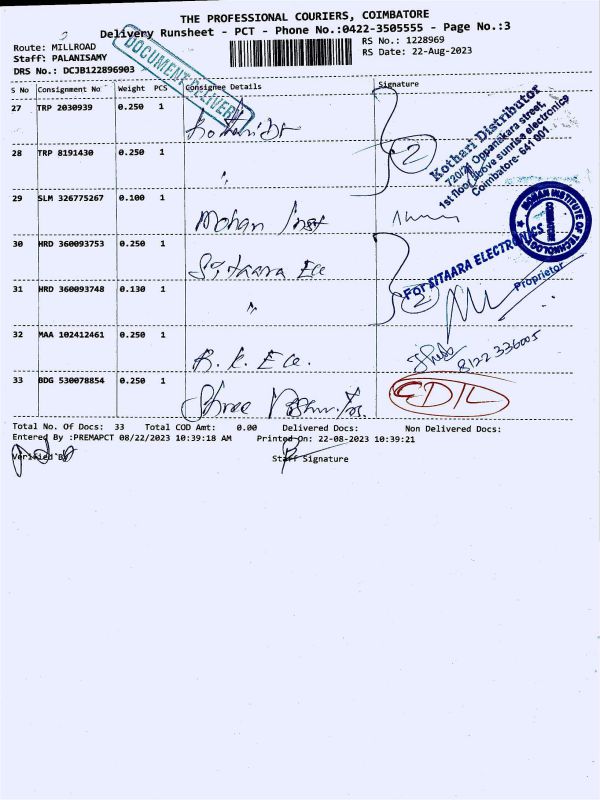 THE PROFESSIONAL COURIERS, COIMBATORE
Delivery Runsheet - PCT - Phone No.:0422-3505555 - Page No.:3
Route: MILLROAD
RS No.: 1228969
Staff: PALANISAMY
RS Date: 22-Aug-2023
DRS No.: DCJB122896903
DOCUMENT DELIVERY
S No Consignment No Weight PCS Consignee Details Signature
27 TRP 2030939 0.250 1 Kothari Dt
Kothari Distributor
720/21 Oppanakara street,
1st floor above sunrise electronics
Coimbatore- 641 001
28 TRP 8191430 0.250 1 "
2
29 SLM 326775267 0.100 1 Mohan Inst
MOHAN INSTITUTE OF TECHNOLOGY
30 HRD 360093753 0.250 1 Sitaara Ele
For SITAARA ELECTRONICS
31 HRD 360093748 0.130 1 "
2
Proprietor
32 MAA 102412461 0.250 1 R.K. Ele.
8122 336005
33 BDG 530078854 0.250 1 Shree
Total No. Of Docs: 33 Total COD Amt: 0.00 Delivered Docs: Non Delivered Docs:
Entered By :PREMAPCT 08/22/2023 10:39:18 AM Printed On: 22-08-2023 10:39:21
Verified By Staff Signature